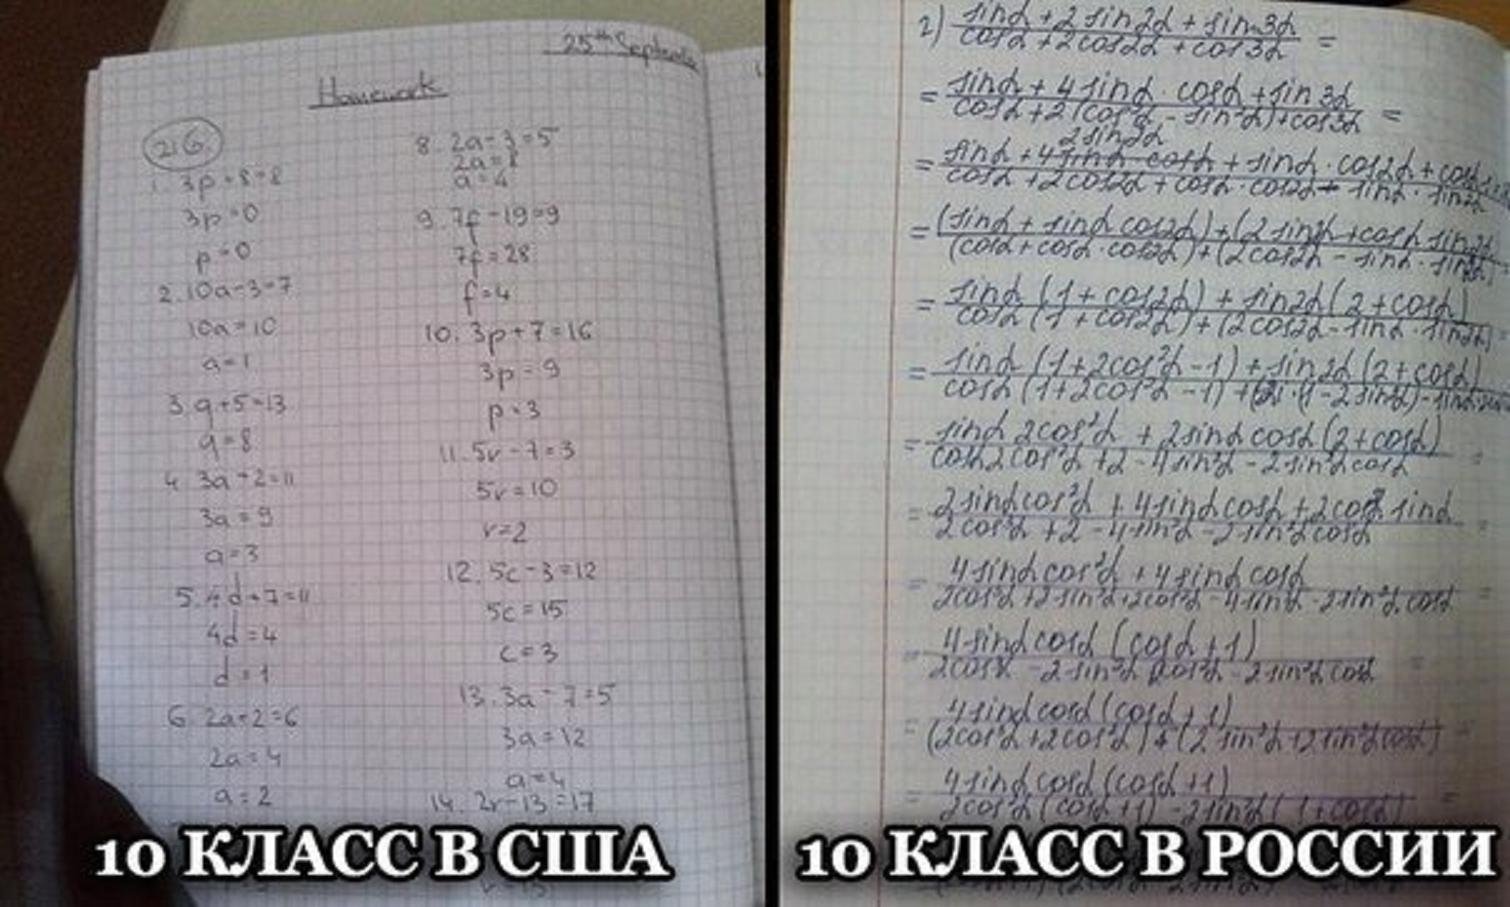 25th Septembe
Homework
216
1. 3p+8=8
3p=0
p=0
2. 10a-3=7
10a=10
a=1
3. q+5=13
q=8
4. 3a+2=11
3a=9
a=3
5. 4d+7=11
4d=4
d=1
6. 2a+2=6
2a=4
a=2
8. 2a-3=5
2a=8
a=4
9. 7f-19=9
7f=28
f=4
10. 3p+7=16
3p=9
p=3
11. 5r-7=3
5r=10
r=2
12. 5c-3=12
5c=15
c=3
13. 3a-7=5
3a=12
a=4
14. 2r-13=17
10 КЛАСС В США
2) sinα + 2sin2α + sin3α / cosα + 2cos2α + cos3α =
= sinα + 4sinα · cosα + sin3α / cosα + 2(cos²α - sin²α) + cos3α =
2sin2α
= sinα + 4sinα cosα + sinα · cos2α + cosα / cosα + 2cos2α + cosα · cos2α - sinα · sin2α
= (sinα + sinα cos2α) + (2sin2α + cosα sin2α / (cosα + cosα · cos2α) + (2cos2α - sinα · sin2α)
= sinα (1 + cos2α) + sin2α (2 + cosα) / cosα (1 + cos2α) + (2cos2α - sinα · sin2α) =
= sinα (1 + 2cos²α - 1) + sin2α (2 + cosα) / cosα (1 + 2cos²α - 1) + (2 · (1 - 2sin²α) - sinα
= sinα 2cos²α + 2sinα cosα (2 + cosα) / cosα 2cos²α + 2 - 4sin²α - 2sin²α cosα =
= 2sinα cos²α + 4sinα cosα + 2cos²α sinα / 2cos³α + 2 - 4sin²α - 2sin²α cosα =
= 4sinα cos²α + 4sinα cosα / 2cos³α + 2sin²α + 2cos²α - 4sin²α - 2sin²α · cosα =
= 4sinα cosα (cosα + 1) / 2cos³α - 2sin²α 2cos²α - 2sin²α cosα =
= 4sinα cosα (cosα + 1) / (2cos³α + 2cos²α) + (2sin²α + 2sin²α cosα) =
= 4sinα cosα (cosα + 1) / 2cos²α (cosα + 1) - 2sin²α (1 + cosα) =
10 КЛАСС В РОССИИ